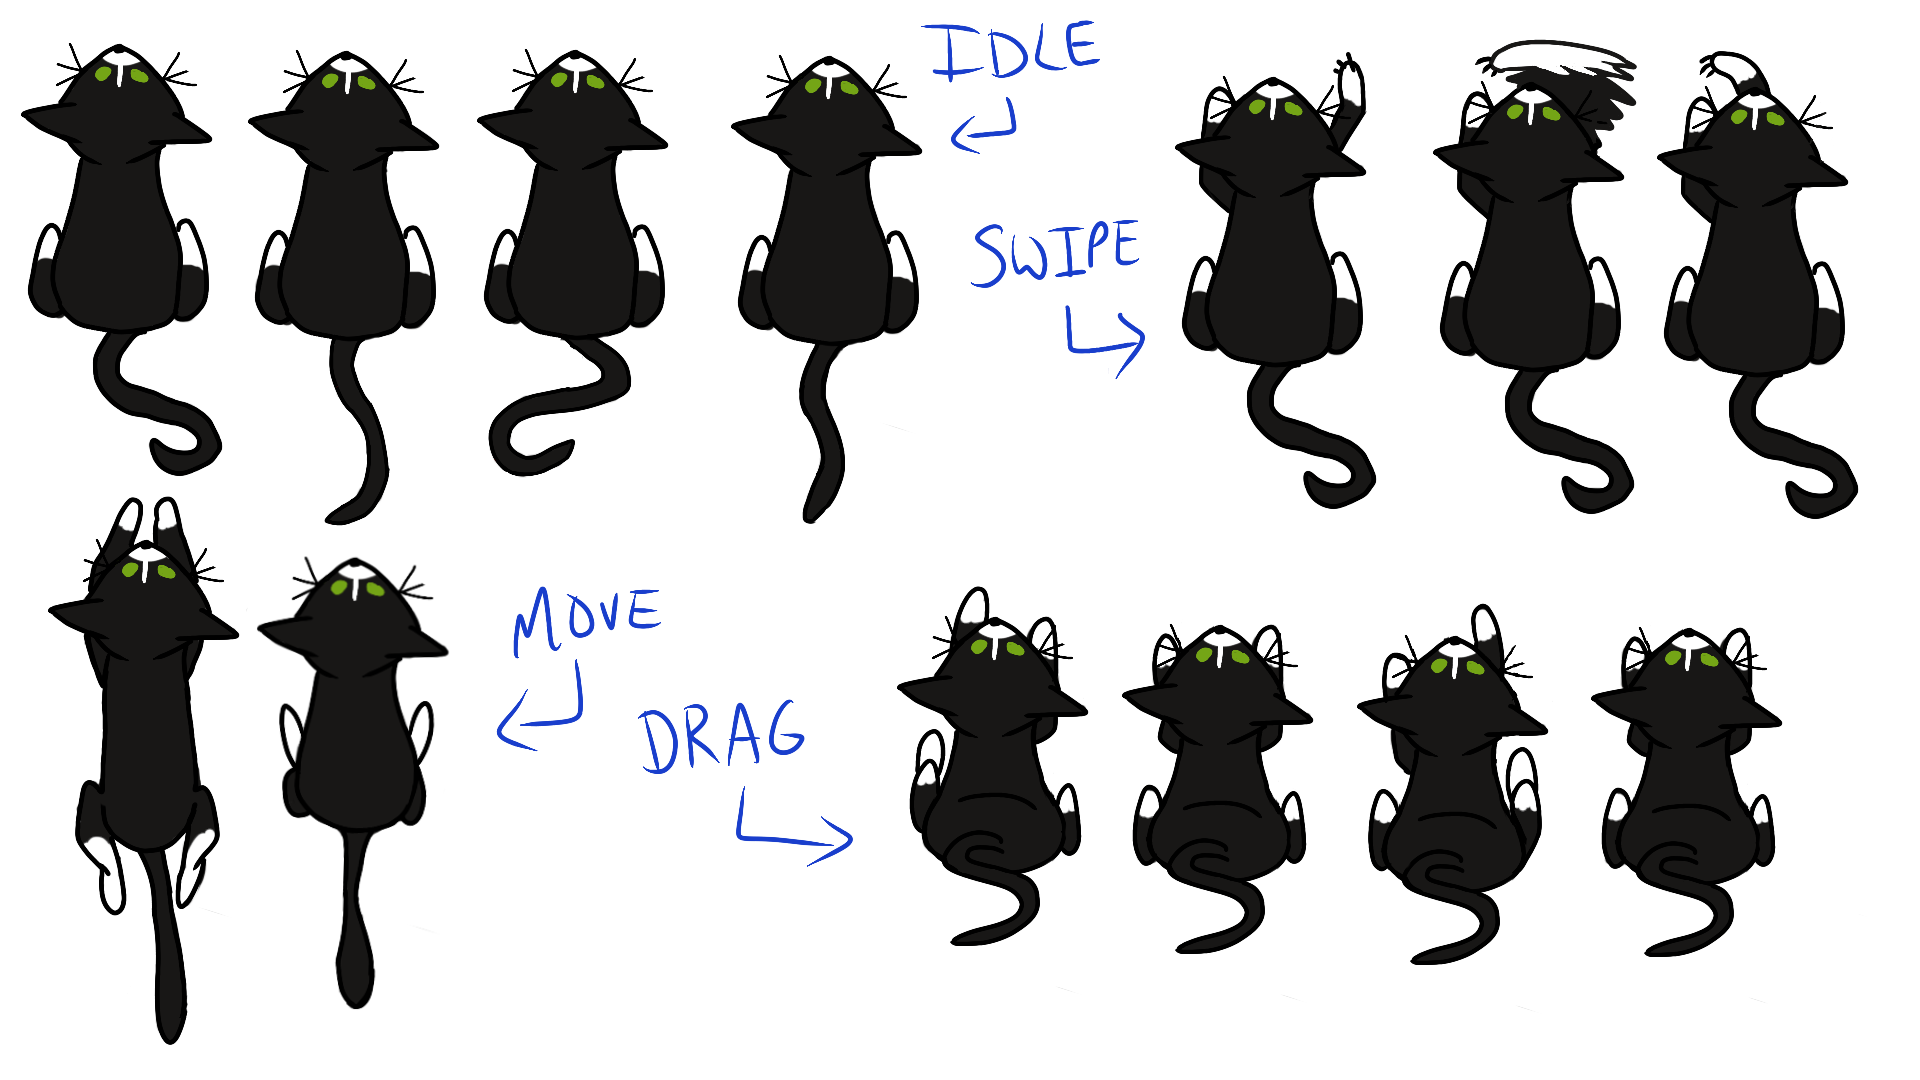 IDLE
SWIPE
MOVE
DRAG